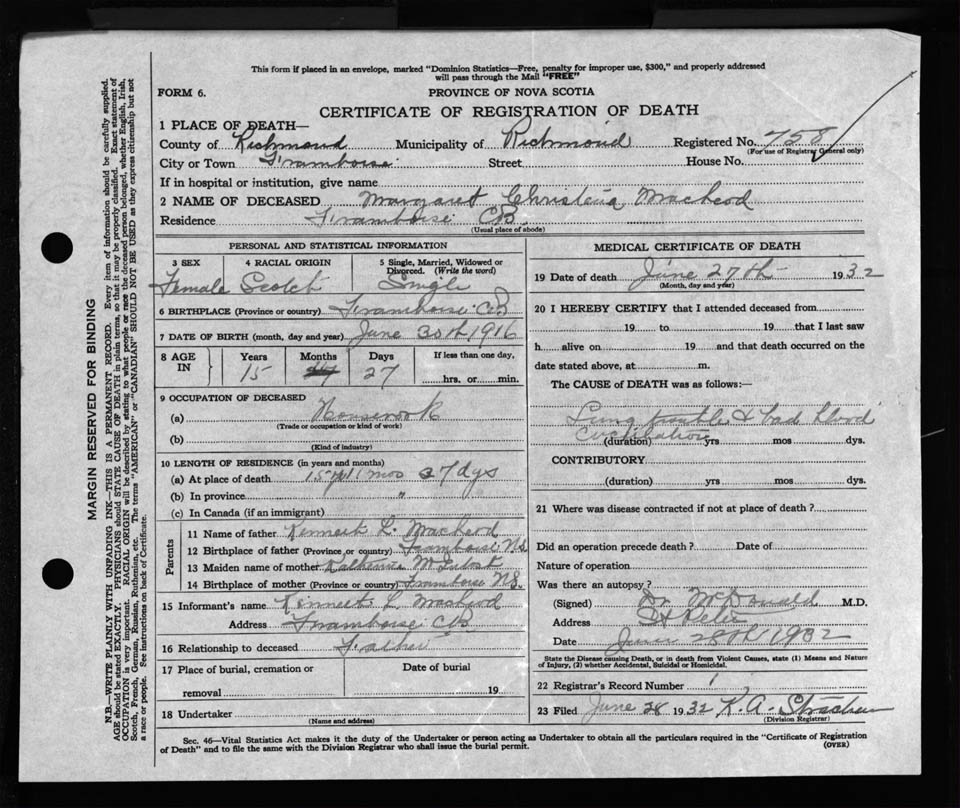 This form if placed in an envelope, marked "Dominion Statistics—Free, penalty for improper use, $300," and properly addressed
will pass through the Mail "FREE"
FORM 6.
PROVINCE OF NOVA SCOTIA
CERTIFICATE OF REGISTRATION OF DEATH
1 PLACE OF DEATH—
County of Richmond Municipality of Richmond Registered No. 758
(For use of Registrar General only)
City or Town Framboise Street House No.
If in hospital or institution, give name
2 NAME OF DECEASED Margaret Christena MacLeod
Residence Framboise CB
(Usual place of abode)
PERSONAL AND STATISTICAL INFORMATION
3 SEX 4 RACIAL ORIGIN 5 Single, Married, Widowed or Divorced. (Write the word)
Female Scotch Single
6 BIRTHPLACE (Province or country) Framboise C.B
7 DATE OF BIRTH (month, day and year) June 30th 1916
8 AGE IN Years Months Days If less than one day,
15 27 hrs. or min.
9 OCCUPATION OF DECEASED
(a) Housework
(Trade or occupation or kind of work)
(b)
(Kind of industry)
10 LENGTH OF RESIDENCE (in years and months)
(a) At place of death 15 yrs 11 mos 27 dys
(b) In province "
(c) In Canada (if an immigrant)
Parents
11 Name of father Kenneth L. MacLeod
12 Birthplace of father (Province or country) Framboise N.S.
13 Maiden name of mother Katherine
14 Birthplace of mother (Province or country) Framboise N.S.
15 Informant's name Kenneth L MacLeod
Address Framboise CB
16 Relationship to deceased Father
17 Place of burial, cremation or Date of burial
removal 19
18 Undertaker
(Name and address)
MEDICAL CERTIFICATE OF DEATH
19 Date of death June 27th 1932
(Month, day and year)
20 I HEREBY CERTIFY that I attended deceased from
19 to 19 that I last saw
h alive on 19 and that death occurred on the
date stated above, at m.
The CAUSE of DEATH was as follows:—
Lung trouble & bad blood
circulation
(duration) yrs mos dys.
CONTRIBUTORY
(duration) yrs mos dys.
21 Where was disease contracted if not at place of death?
Did an operation precede death? Date of
Nature of operation
Was there an autopsy?
(Signed) Dr McDonald M.D.
Address St Peter
Date June 28th 1932
State the Disease causing Death, or in death from Violent Causes, state (1) Means and Nature
of Injury, (2) whether Accidental, Suicidal or Homicidal.
22 Registrar's Record Number 1
23 Filed June 28 1932 K. A. Strachan
(Division Registrar)
Sec. 46—Vital Statistics Act makes it the duty of the Undertaker or person acting as Undertaker to obtain all the particulars required in the "Certificate of Registration
of Death" and to file the same with the Division Registrar who shall issue the burial permit.
(OVER)
MARGIN RESERVED FOR BINDING
N.B.—WRITE PLAINLY WITH UNFADING INK—THIS IS A PERMANENT RECORD. Every item of information should be carefully supplied.
AGE should be stated EXACTLY. PHYSICIANS should STATE CAUSE OF DEATH in plain terms, so that it may be properly classified. Exact statement of
OCCUPATION is very important. RACIAL ORIGIN will be described by stating to what people or race the deceased person belonged, whether English, Irish,
Scotch, French, German, Russian, Ruthenian, etc. The terms "AMERICAN" or "CANADIAN" SHOULD NOT BE USED as they express citizenship but not
a race or people. See instructions on back of Certificate.